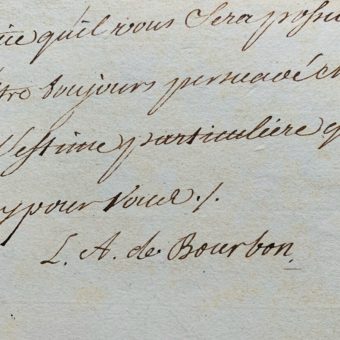 que qu'il vous Sera possi
tre toujours persuadé
l'estime particuliere q
y pour vous ./.
L. A. de Bourbon.